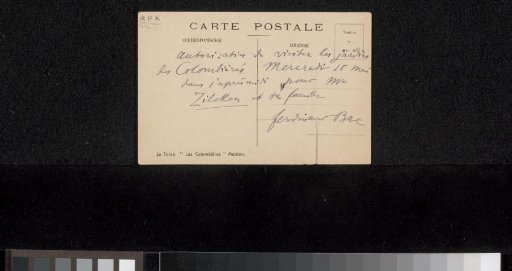 RPK
CARTE POSTALE
CORRESPONDANCE
ADRESSE
autorisation de visiter les jardins
des Colombières Mercredi 18 mai
dans l'après midi pour Mr
Zilcken et sa famille
Ferdinand Bac
La Torse. " Les Colombières " Menton.